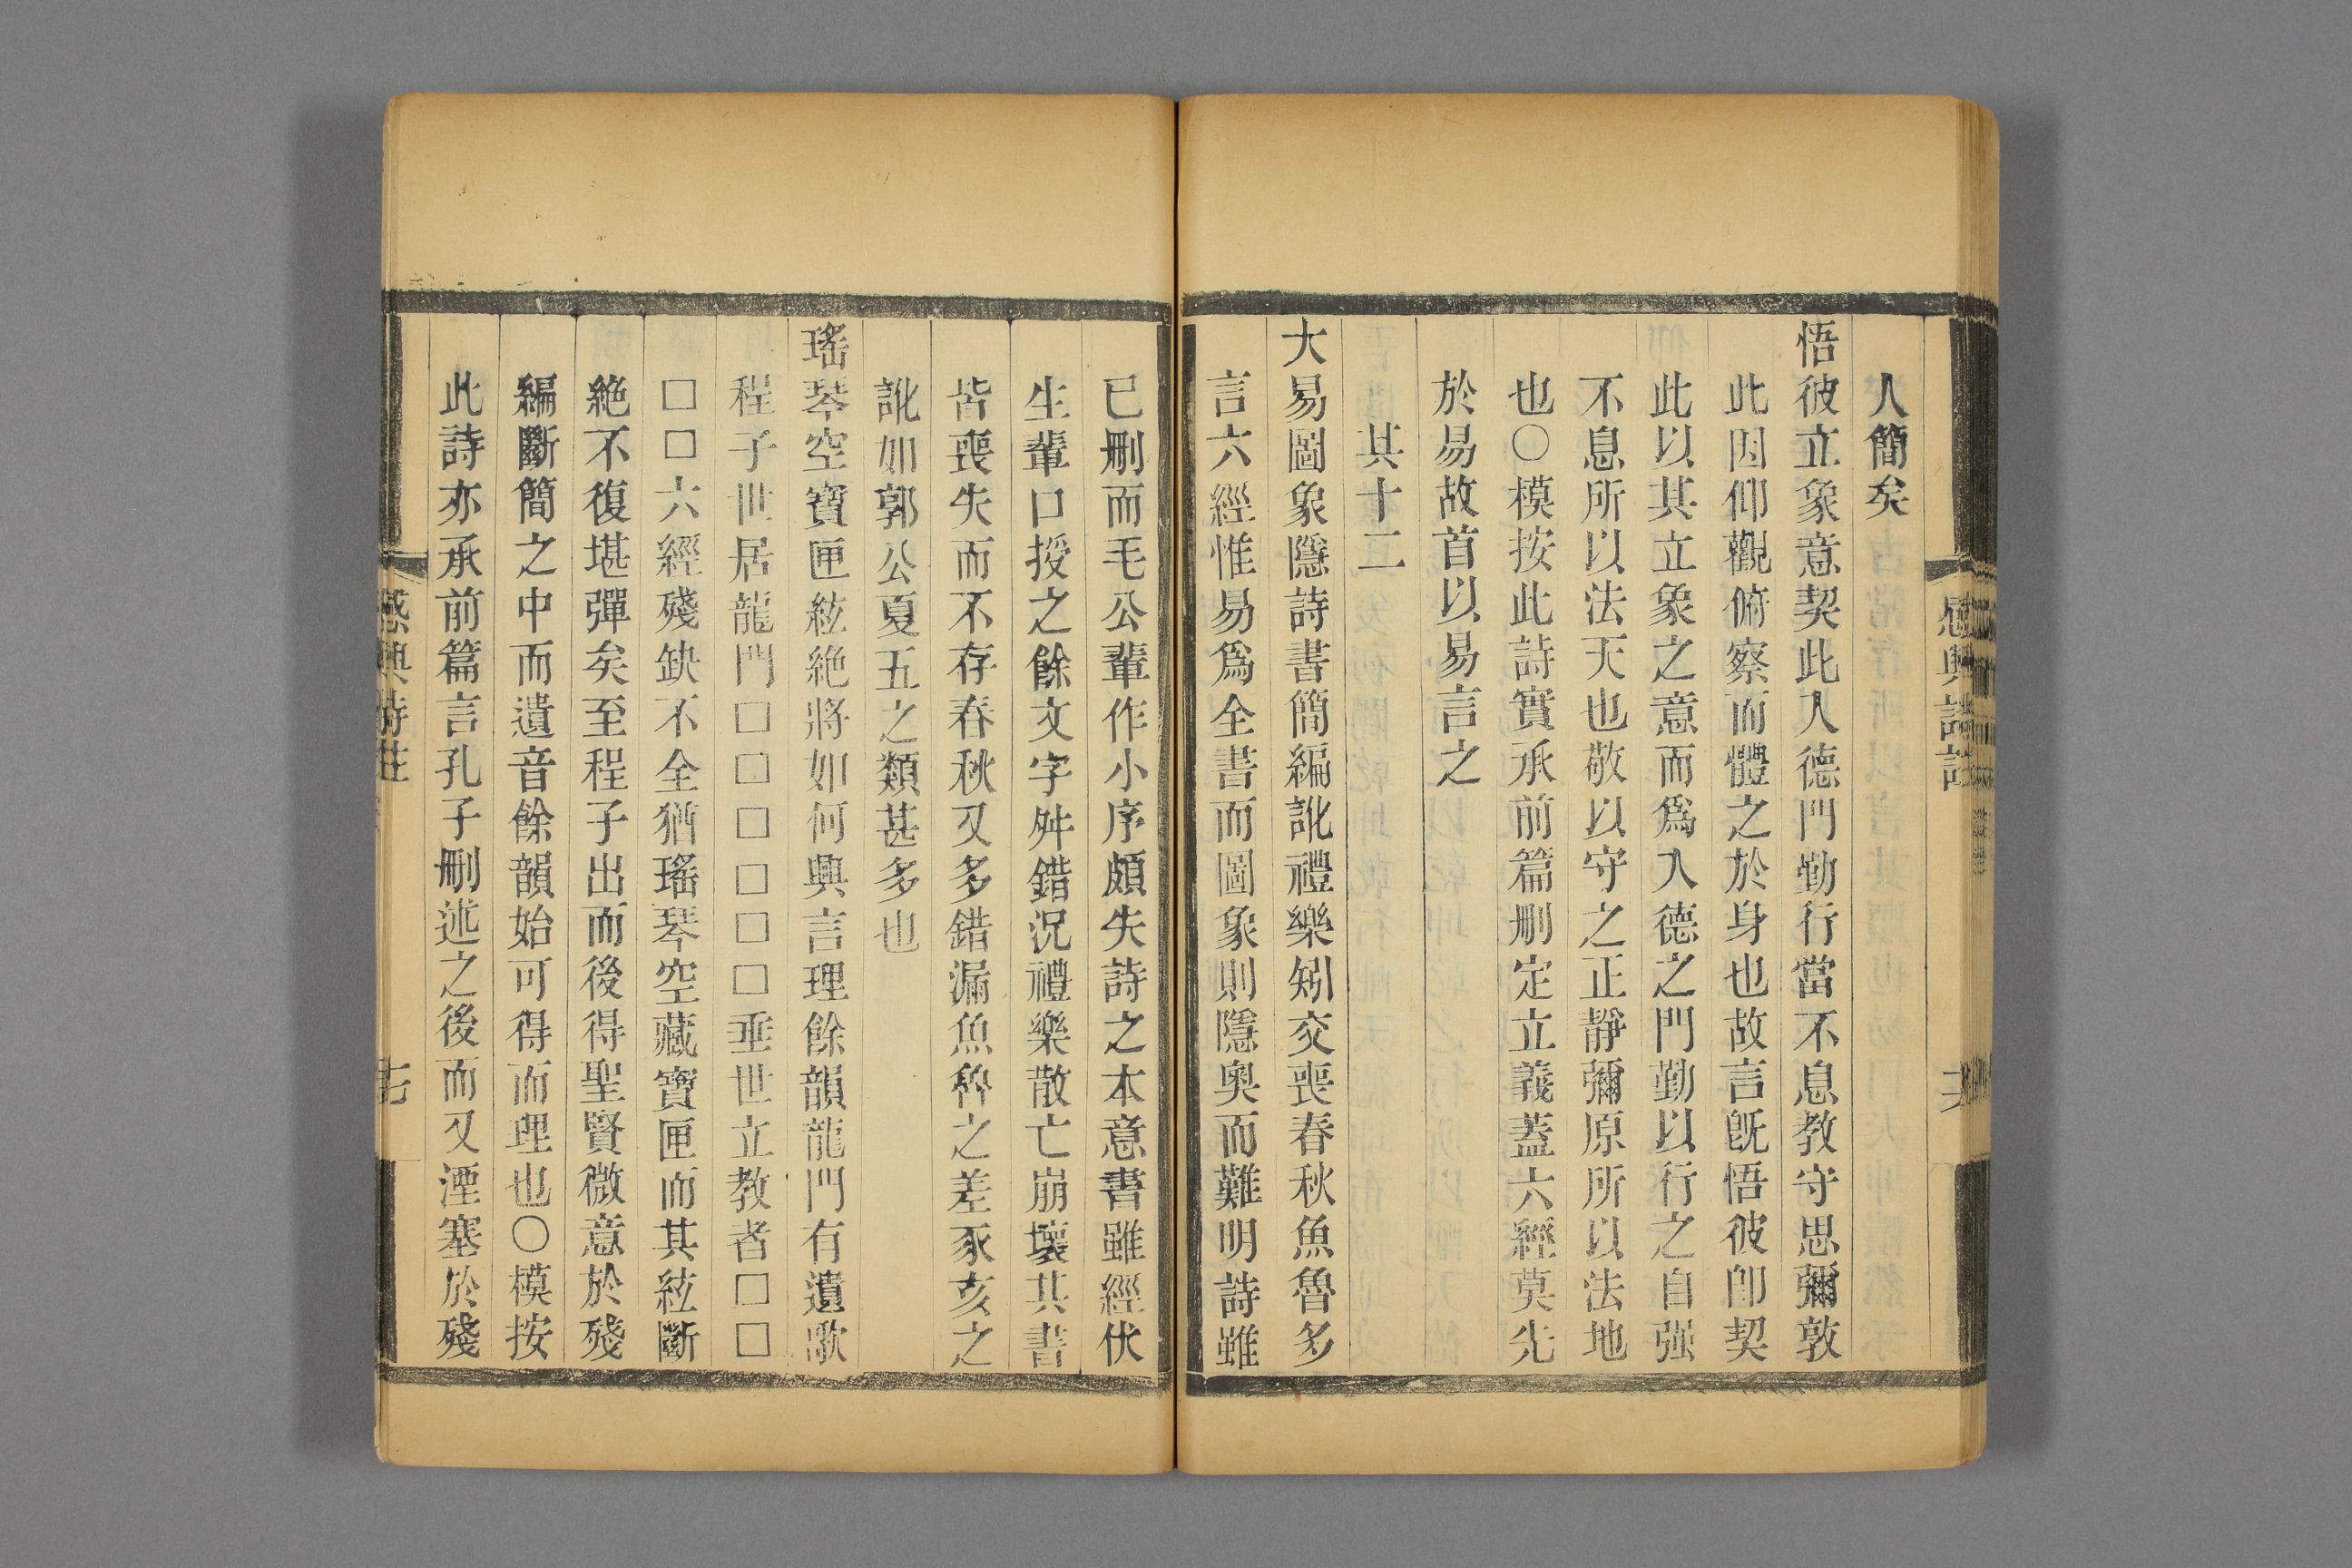 感興詩註
人簡矣
悟彼立象意契此入德門勤行當不息敎守思彌敦
此因仰觀俯察而體之於身也故言旣悟彼卽契
此以其立象之意而爲入德之門勤以行之自强
不息所以法天也敬以守之正靜彌原所以法地
也○模按此詩實承前篇刪定立義蓋六經莫先
於易故首以易言之
其十二
大易圖象隱詩書簡編訛禮樂矧交喪春秋魚魯多
言六經惟易爲全書而圖象則隱奧而難明詩雖
已刪而毛公輩作小序頗失詩之本意書雖經伏
生輩口授之餘文字舛錯況禮樂散亡崩壞其書
皆喪失而不存春秋又多錯漏魚稗之差豕亥之
訛如郭公夏五之類甚多也
瑤琴空寶匣絃絶將如何興言理餘韻龍門有遺歌
程子世居龍門□□□□□□垂世立敎者□□
□□六經殘缺不全猶瑤琴空藏寶匣而其絃斷
絶不復堪彈矣至程子出而後得聖賢微意於殘
編斷簡之中而遺音餘韻始可得而理也○模按
此詩亦承前篇言孔子刪述之後而又湮塞於殘
感興詩註
十七